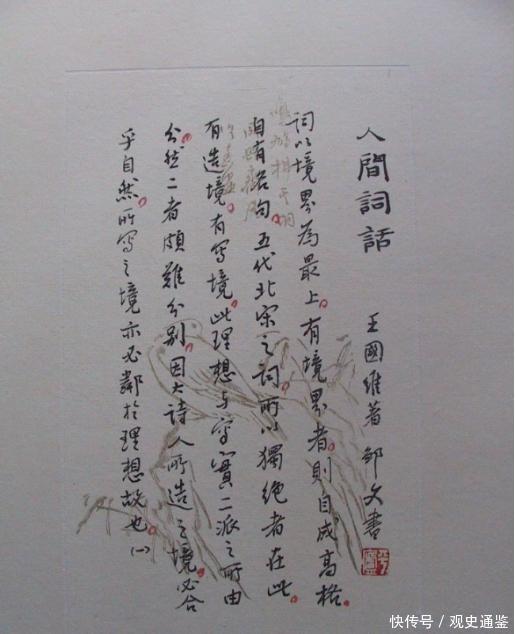 人間詞話
王國維著 文書
詞以境界為最上。有境界者。則自成高格。
自有名句。五代北宋之詞。所以獨絶者在此。
有造境。有寫境。此理想与寫實二派之所由
分。然二者頗難分别。因大詩人所造之境必合
乎自然。所寫之境亦必鄰於理想故也。(一)
快传号 / 观史通鉴